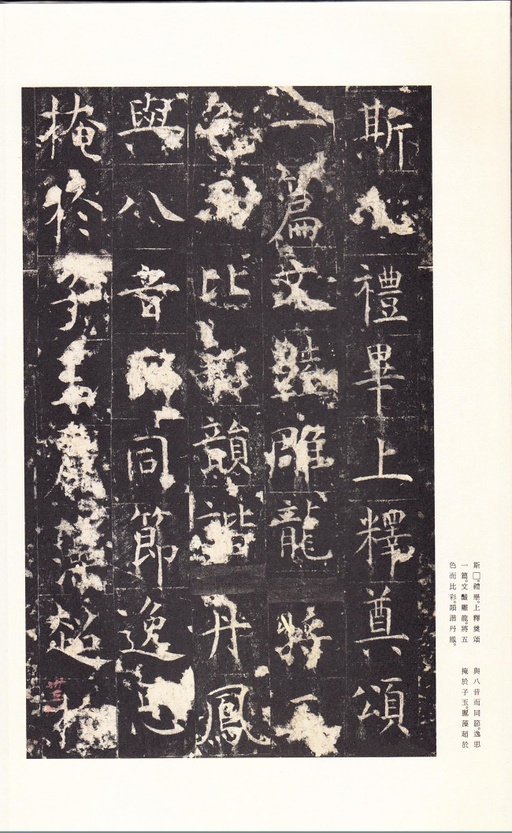 斯□。禮畢上釋奠頌
一篇。文豔雕龍。將五
色而比彩。韻諧丹鳳。
與八音而同節。逸思
掩於子玉。麗藻超於
斯禮畢上釋奠頌
一篇文豔雕龍將五
色比韻諧丹鳳
與八音同節逸思
掩於子藻超於